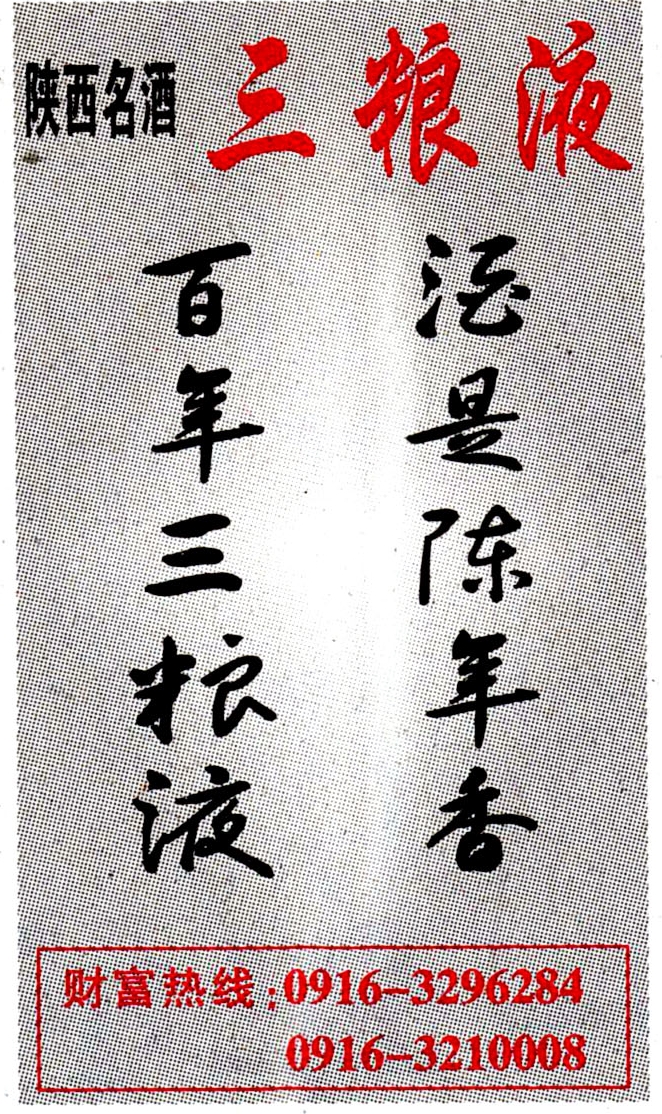 陕西名酒 三粮液
酒是陈年香
百年三粮液
财富热线：0916-3296284
0916-3210008